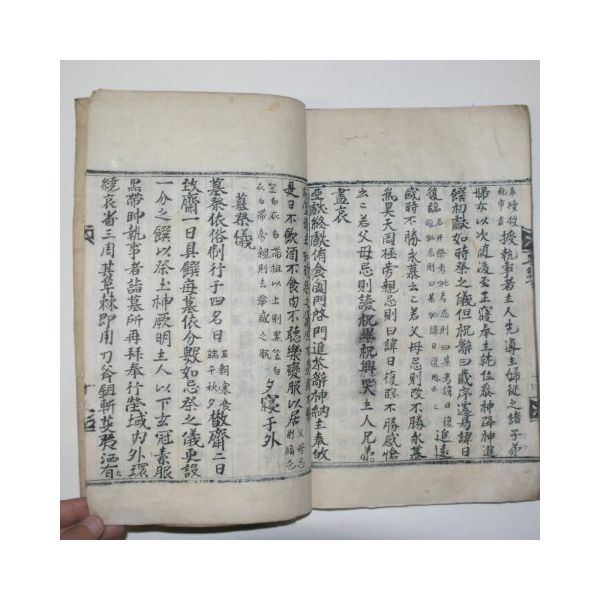 授執事者主人先導主婦從之諸子弟
婦女以次隨後至正寢奉主就位參神降神進
饌初獻如時祭之儀但祝辭曰歲序遷易諱日
復臨
感時不勝永慕云云若父母忌則改不勝永慕
爲昊天罔極旁親忌則曰諱日復臨不勝感愴
云云若父母忌則讀祝畢祝興哭主人兄弟
盡哀
亞獻終獻侑食闔門啓門進茶辭神納主奉
是日不飮酒不食肉不聽樂變服以居
夕寢于外
墓祭儀
墓祭依俗制行于四名日 正朝寒食端午秋夕 散齋二日
致齋一日具饌每墓依分數如忌祭之儀更設
一分之饌以祭土神厥明主人以下玄冠素服
黑帶帥執事者詣墓所再拜奉行塋域內外環
繞哀省三周其草棘卽用刀斧鉏斬芟夷洒